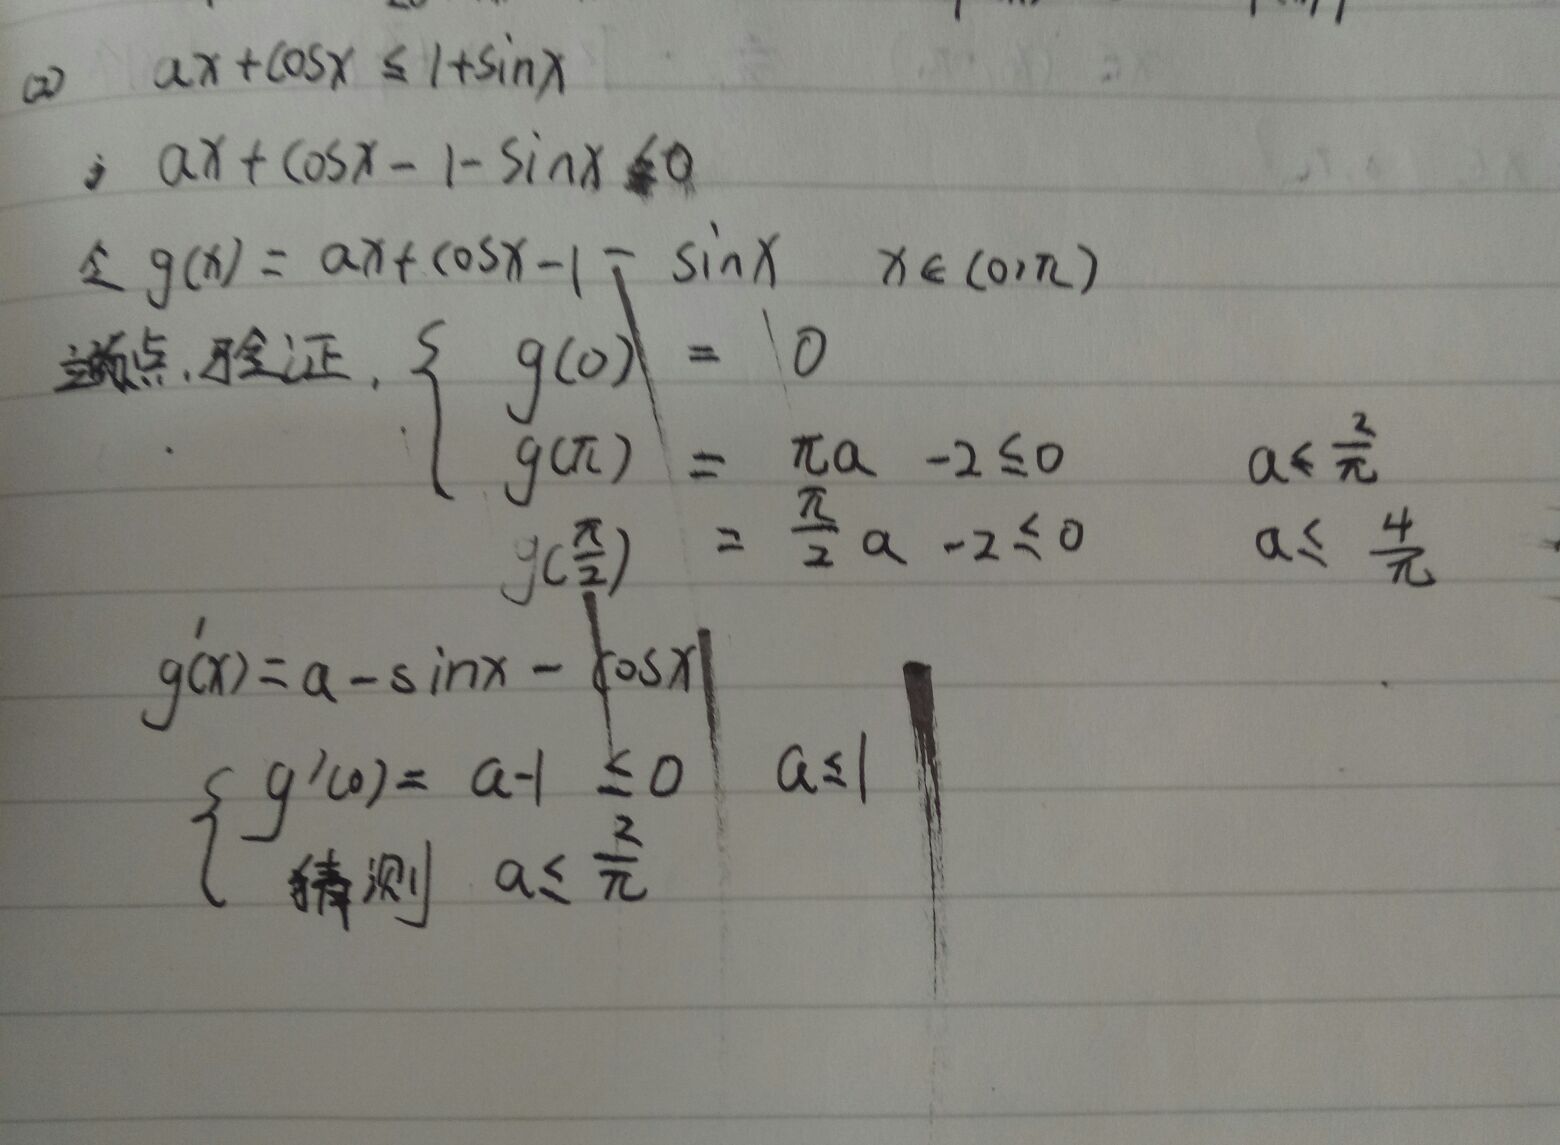 (2) ax+cosx ≤ 1+sinx
ax+cosx-1-sinx ≤0
令 g(x) = ax+cosx-1-sinx x∈(0,π)
端点、验证, { g(0) = 0
g(π) = πa -2≤0 a≤ 2/π
g(π/2) = π/2 a -2≤0 a≤ 4/π
g'(x)=a-sinx-cosx
{ g'(0)= a-1 ≤0 a≤1
猜测 a≤ 2/π